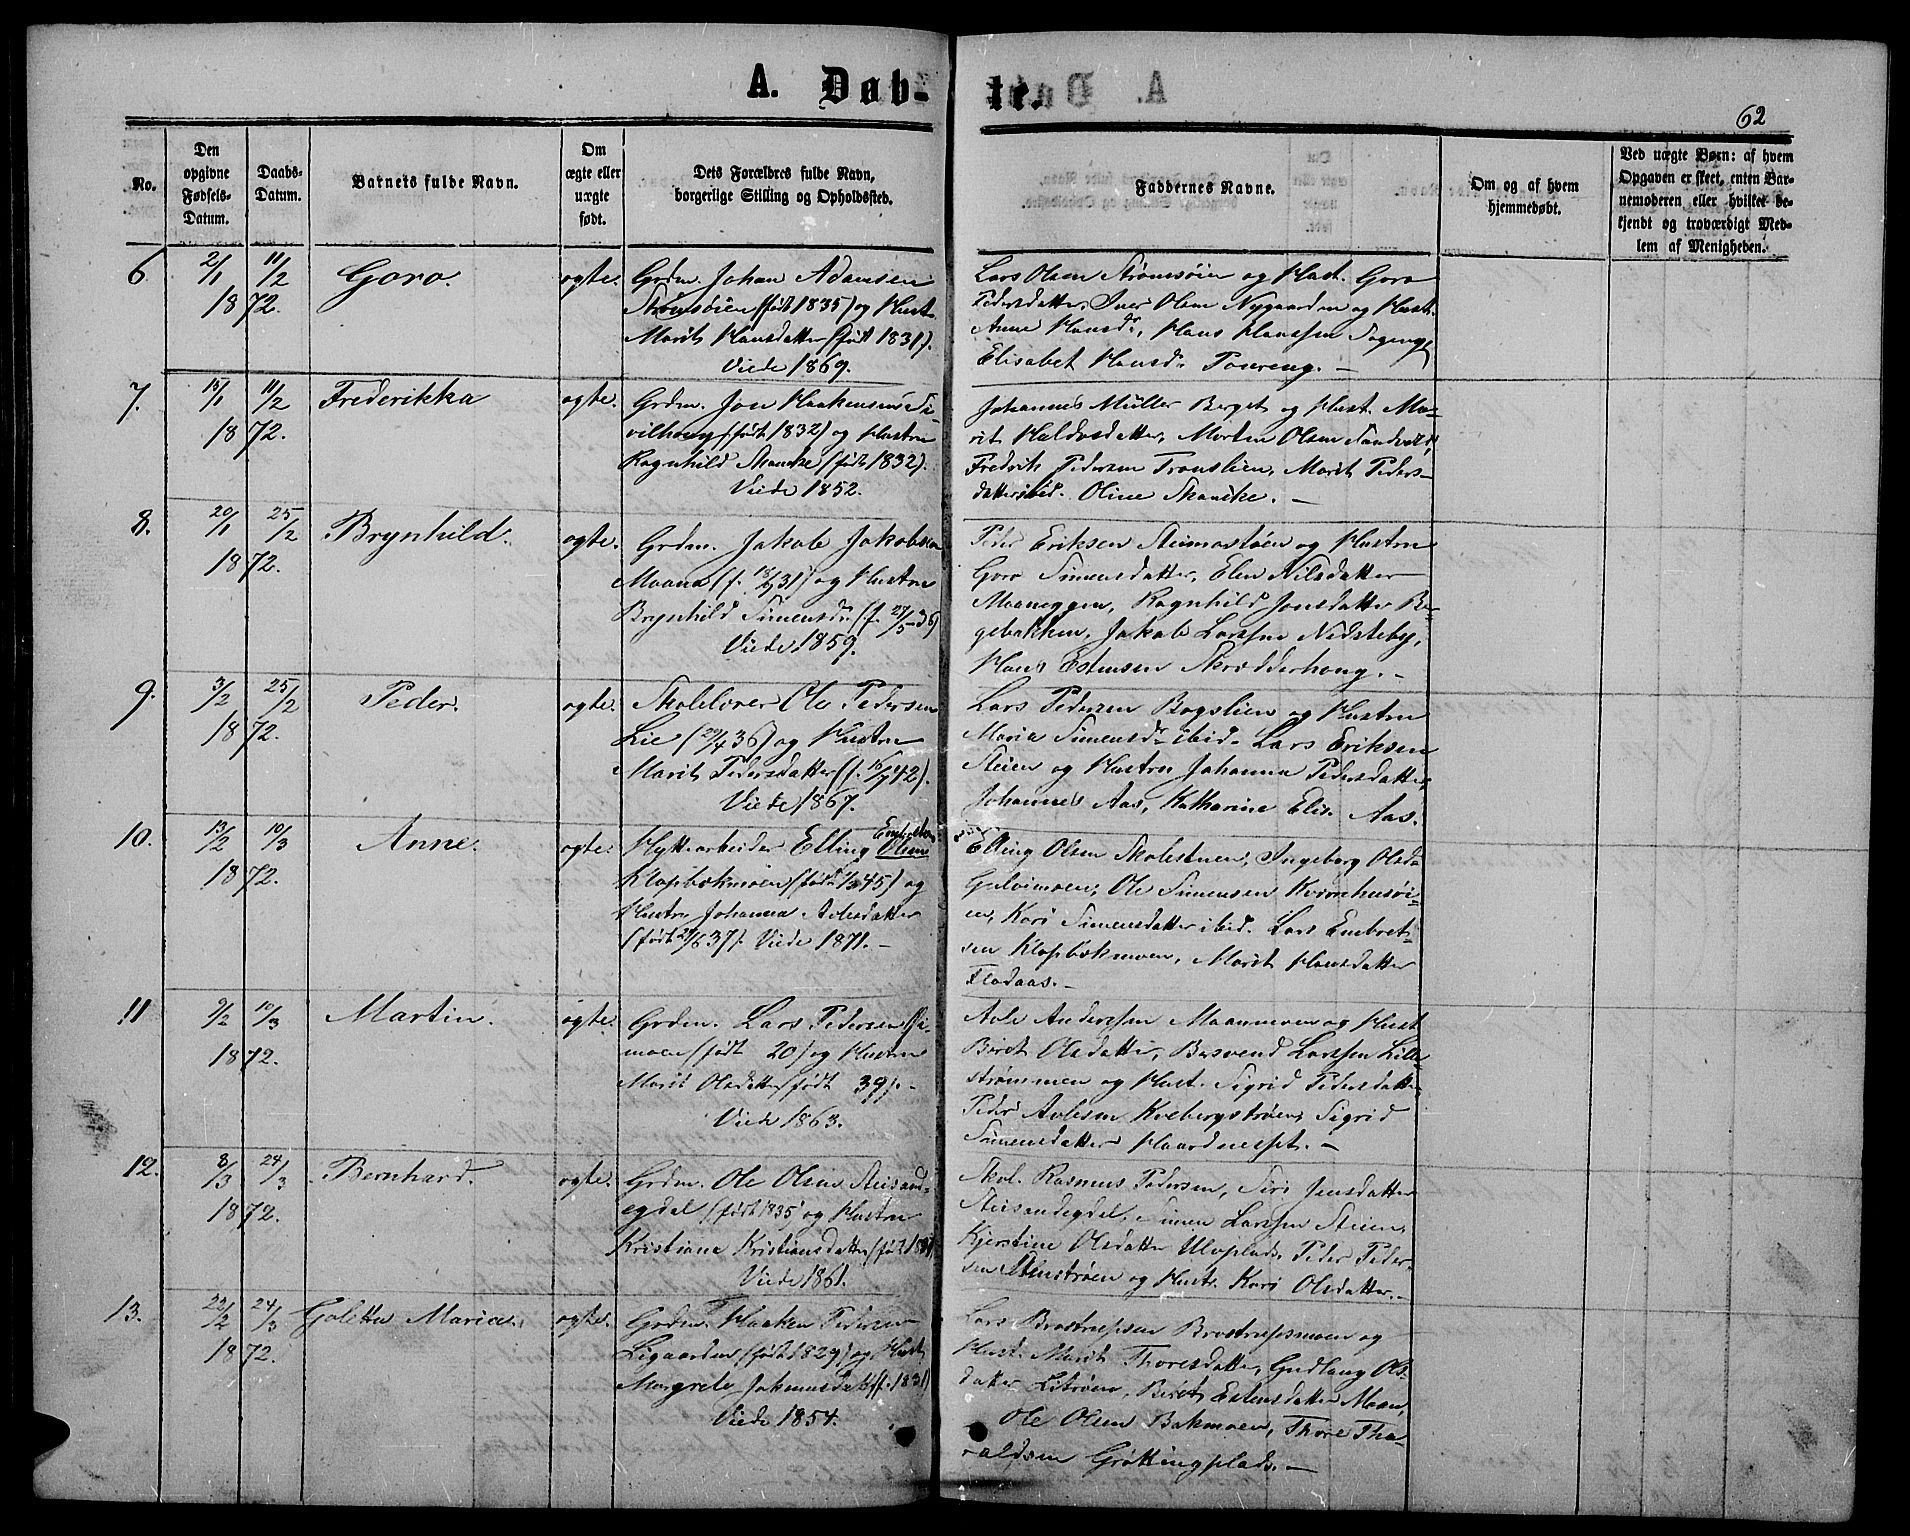 A. Døb-
te.
62
No.
Den
opgivne
Fødsels-
Datum.
Daabs-
Datum.
Barnets fulde Navn.
Om
ægte eller
uægte
født.
Dets Forældres fulde Navn,
borgerlige Stilling og Opholdssted.
Faddernes Navne.
Om og af hvem
hjemmedøbt.
Ved uægte Børn: af hvem
Opgaven er skeet, enten Bar-
nemoderen eller hvilket be-
kjendt og troværdigt Med-
lem af Menigheden.
6. 2/1 1872. 11/2 Goro. ægte.
Grdm. Johan Adamsen
Strømsøien (født 1835) og Hust.
Marit Hansdatter (født 1831).
Viede 1869.
Lars Olsen Strømsøien og Hust. Goro
Pedersdatter, Iver Olsen Nygaarden og Hust.
Anne Hansdr, Hans Hanssen
Elisabet Hansd. Toureng. —
7. 15/1 1872. 11/2 Frederikka ægte.
Grdm. Jon Haakensen
vilhaug (født 1832) og Hustru
Ragnhild Skancke (født 1832).
Viede 1852.
Johannes Müller Berget og Hust. Ma-
rit Haldosdatter, Morten Olsen Sandvold,
Fredrik Pedersen Tronslien, Marit Peders-
datter ibid. Oline Skancke. —
8. 20/1 1872. 25/2 Brynhild. ægte.
Grdm. Jakob Jakobsen
Moana (f. 31) og Hustru
Brynhild Simensdr (f. 27/5 36)
Viede 1859.
Peder Eriksen Steimostøen og Hustru
Goro Simensdatter, Elen Nilsdatter
Maaneggen, Ragnhild Jonsdatter Bæ-
gebakken, Jakob Larssen Nedsteby,
Hans Estensen Skrædderhaug. —
9. 3/2 1872. 25/2 Peder. ægte.
Skolelærer Ole Pedersen
Lie (29/4 36) og Hustru
Marit Pedersdatter (f. 42).
Viede 1867.
Lars Pedersen Bogslien og Hustru
Maria Simensdr ibid. Lars Eriksen
Steien og Hustru Johanna Pedersdatter,
Johannes Aas, Katharine Elis. Aas.
10. 13/2 1872. 10/3 Anne. ægte.
Hyttearbeider Elling Olsen
Klopbækmoen (født 45) og
Hustru Johanna Avlesdatter
(født 37). Viede 1871. —
Elling Olsen Skolestuen, Ingeborg Olsd.
Galoimoen, Ole Simensen Kværnhusøi-
en, Kari Simensdatter ibid. Lars Embret-
sen Klopbækmoen, Marit Hansdatter
Flodaas. —
11 9/2 1872. 10/3 Martin. ægte.
Grdm. Lars Pedersen
moen (født 20) og Hustru
Marit Olsdatter (født 39). —
Viede 1863.
Avle Anderssen Maanmoen og Hust
Beret Olsdatter, Bersvend Larssen Lille-
strømmen og Hust. Sigrid Pedersdatter,
Peder Avlesen Kvebergstrøen, Sigrid
Simensdatter Haardnesset. —
12. 8/3 1872. 24/3 Bernhard. ægte.
Grdm. Ole Olsen Steisand-
egdal (født 1835) og Hustru
Kristiane Kristiansdatter (født
Viede 1861.
Skol. Rasmus Pedersen, Siri Jensdatter
Steisandegdal, Simen Larssen Steien,
Kjerstine Olsdatter Ulvplads. Peder Peder-
sen Stenstrøen og Hustr. Kari Olsdatter. —
13. 22/2 1872. 24/3 Golette Maria. ægte.
Grdm. Haaken Pedersen
Ligaarden (født 1829) og Hust.
Margrete Johannesdatr (f. 1831)
Viede 1854.
Lars Brostrupsen Brostrupsmoen og
Hust. Marit Thoresdatter, Gudlaug Ols-
datter Litrøen, Beret Estensdatter Moan,
— Ole Olsen Bakmoen, Thore Tha-
raldsen Grøttingplads. —